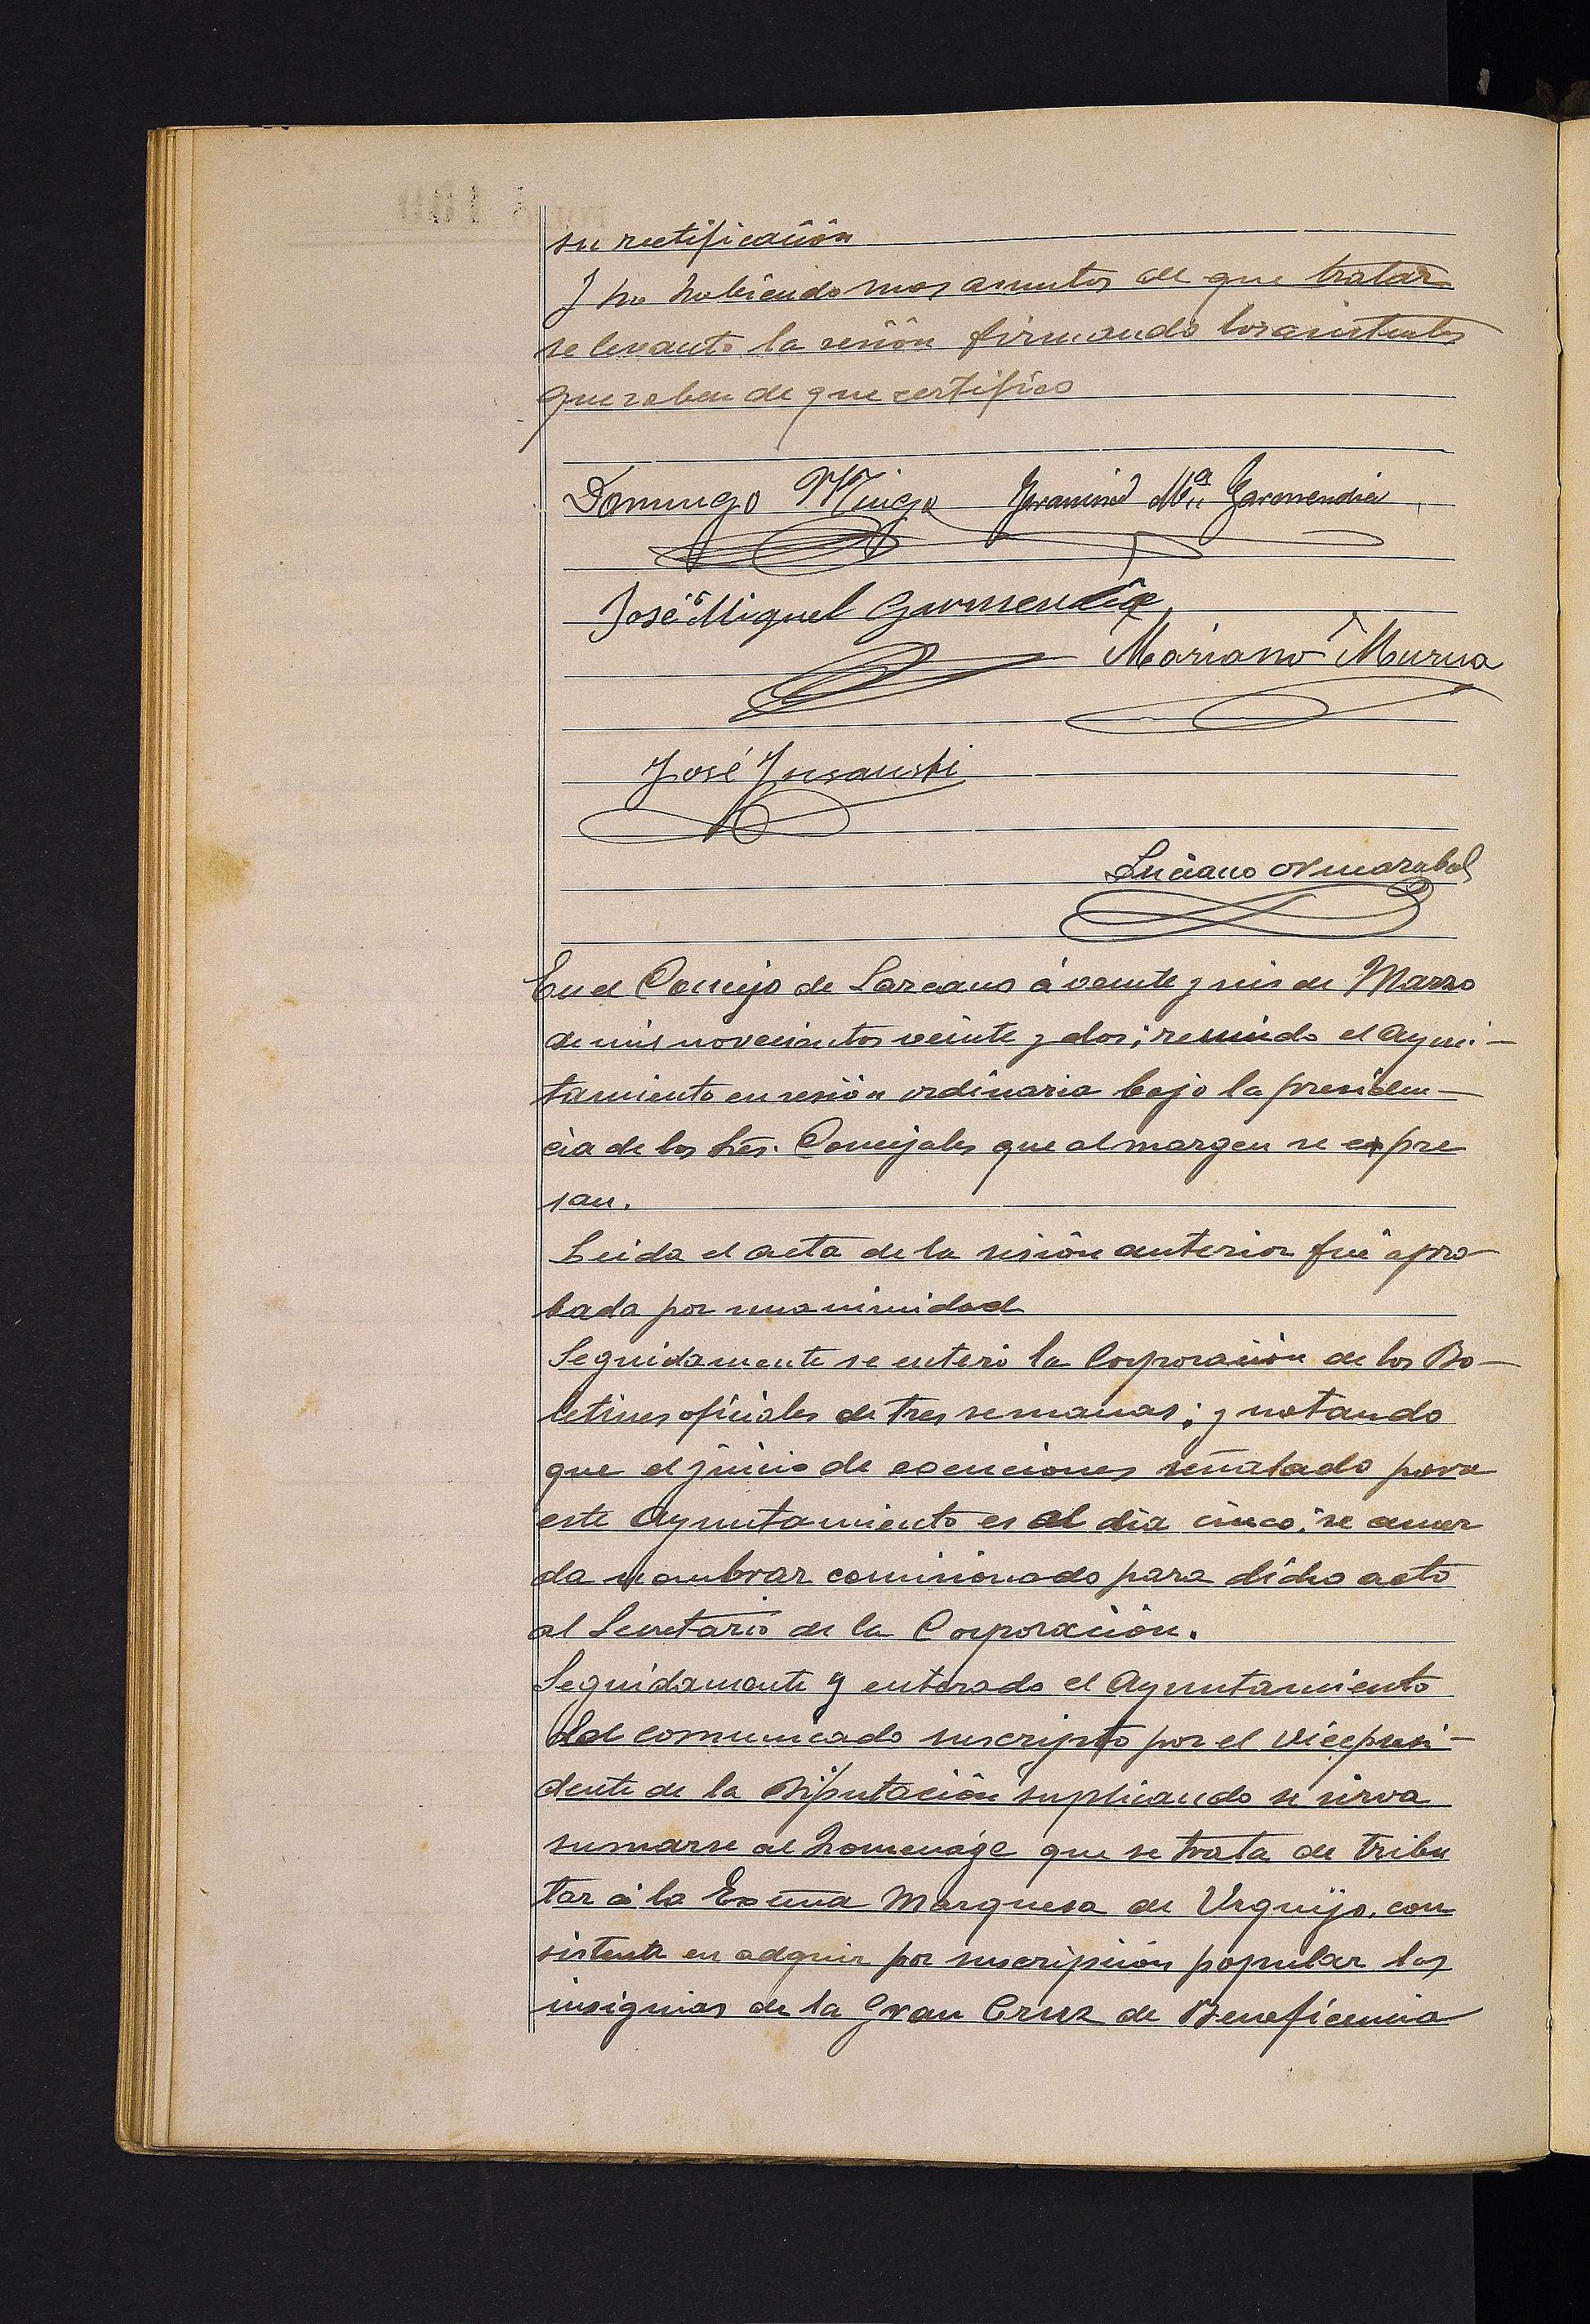 su rectificación
Y no habiendo mas asuntos de que tratar
se levanto la sesión firmando los asistentes
que saben de que certifico
Domingo Múgica Mª Garmendia
José Miguel Garmendia
Mariano Murua
José Insausti
Luciano Ormazabal
En el Concejo de Lazcano á veinte y seis de Marzo
de mil novecientos veinte y dos; reunido el Ayun-
tamiento en sesión ordinaria bajo la presiden-
cia de los Sres. Concejales que al margen se expre
san.
Leida el acta de la sesión anterior fué apro-
bada por unanimidad
Seguidamente se enteró la Corporación de los Bo-
letines oficiales de tres semanas; y notando
que el juicio de exenciones señalado para
este Ayuntamiento es el dia cinco; se acuer
da nombrar comisionado para dicho acto
al Secretario de la Corporación.
Seguidamente y enterado el Ayuntamiento
del comunicado suscripto por el Vicepresi-
dente de la Diputación suplicando se sirva
sumarse al homenage que se trata de tribu
tar á la Excma Marquesa de Urquijo, con
sistente en adquir por suscripción popular las
insignias de la Gran Cruz de Beneficencia